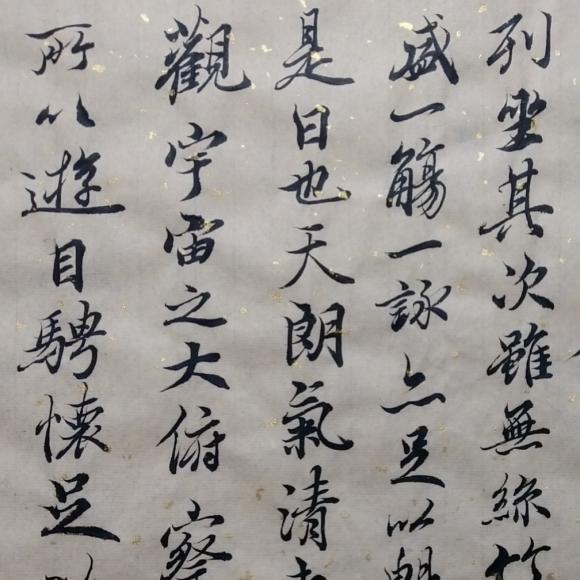 列坐其次雖無絲竹
盛一觴一詠亦足以暢
是日也天朗氣清
觀宇宙之大俯察
所以遊目騁懷足